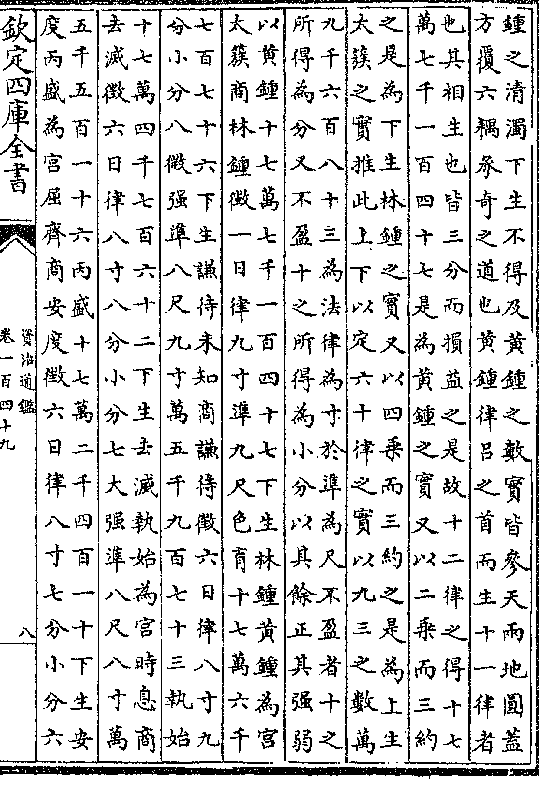 鍾之清濁下生不得及黃鍾之數實皆參天兩地圓蓋
方覆六耦承奇之道也黃鍾律呂之首而生十一律者
也其相生也皆三分而損益之是故十二律之得十七
萬七千一百四十七是為黃鍾之實又以二乘而三約
之是為下生林鍾之實又以四乘而三約之是為上生
太簇之實推此上下以定六十律之實以九三之數萬
九千六百八十三為法律為寸於準為尺不盈者十之
所得為分又不盈十之所得為小分以其餘正其强弱
以黃鍾十七萬七千一百四十七下生林鍾黃鍾為宮
太簇商林鍾徵一日律九寸準九尺色育十七萬六千
七百七十六下生謙待未知商謙待徵六日律八寸九
分小分八微强準八尺九寸萬五千九百七十三執始
十七萬四千七百六十二下生去滅執始為宮時息商
去滅徵六日律八寸八分小分七大强準八尺八寸萬
五千五百一十六丙盛十七萬二千四百一十下生安
度丙盛為宮屈齊商安度徵六日律八寸七分小分六
欽定四庫全書
資治通鑑
卷一百四十九
八